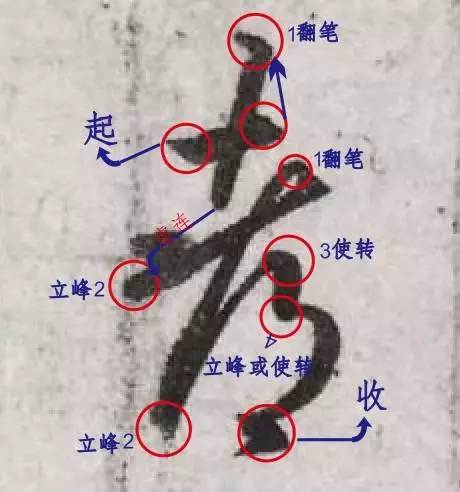 考
1翻笔
起
1翻笔
虚连
3使转
立峰2
立峰或使转
收
立峰2